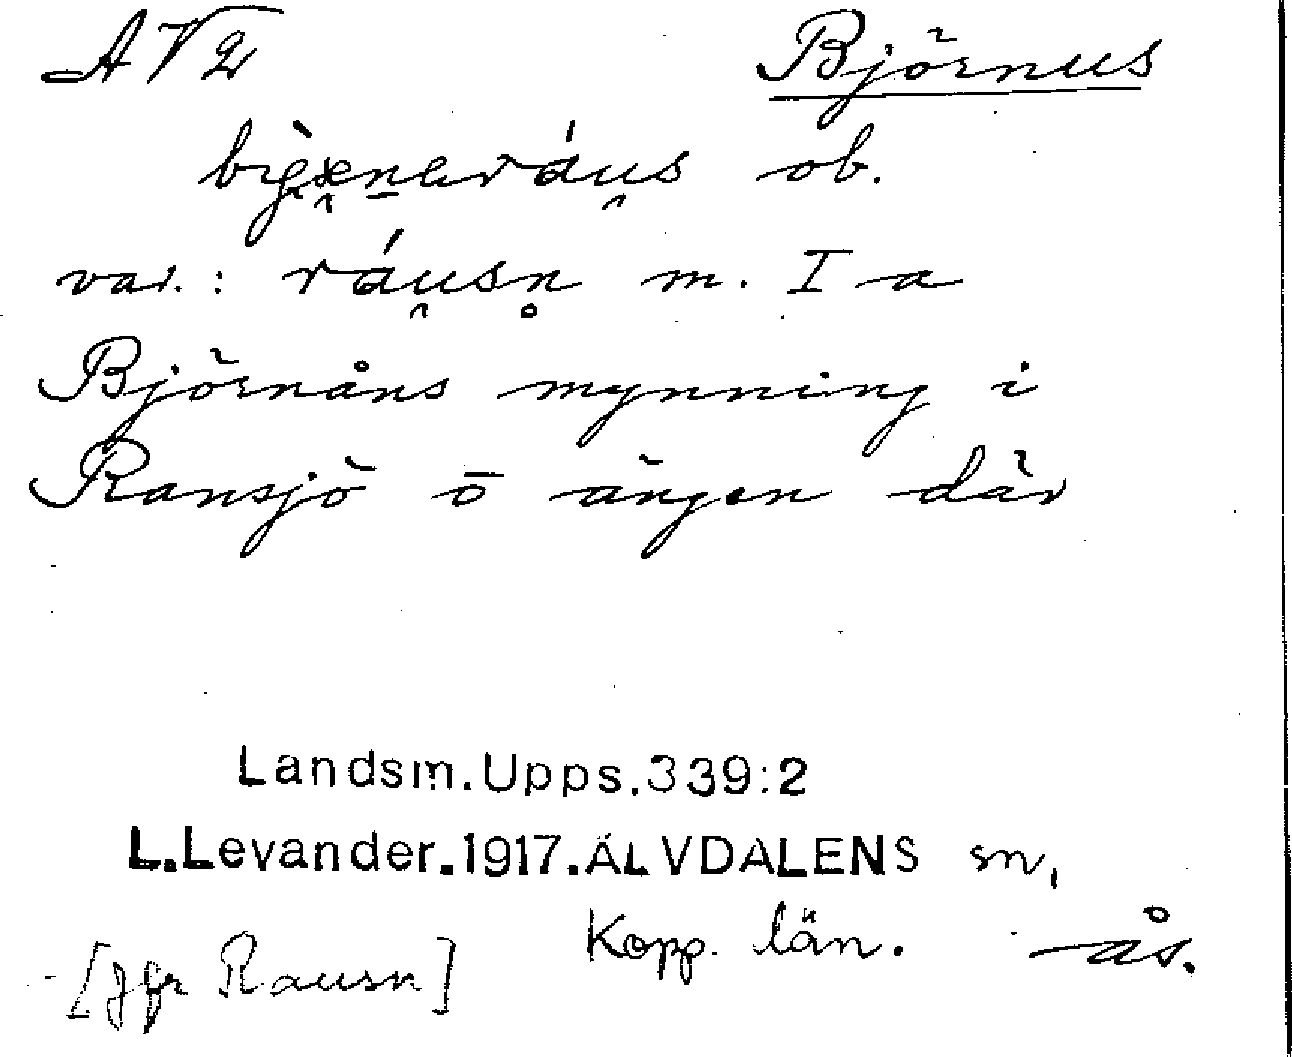 AV2 Björnus
ob.
var.: ráusn m. I a
Björnåns mynning i
Ransjö o ängen där
Landsm.Upps.339:2
L.Levander.1917.ÄLVDALENS sn,
Kopp. län. ås.
[Jfr Rausn]